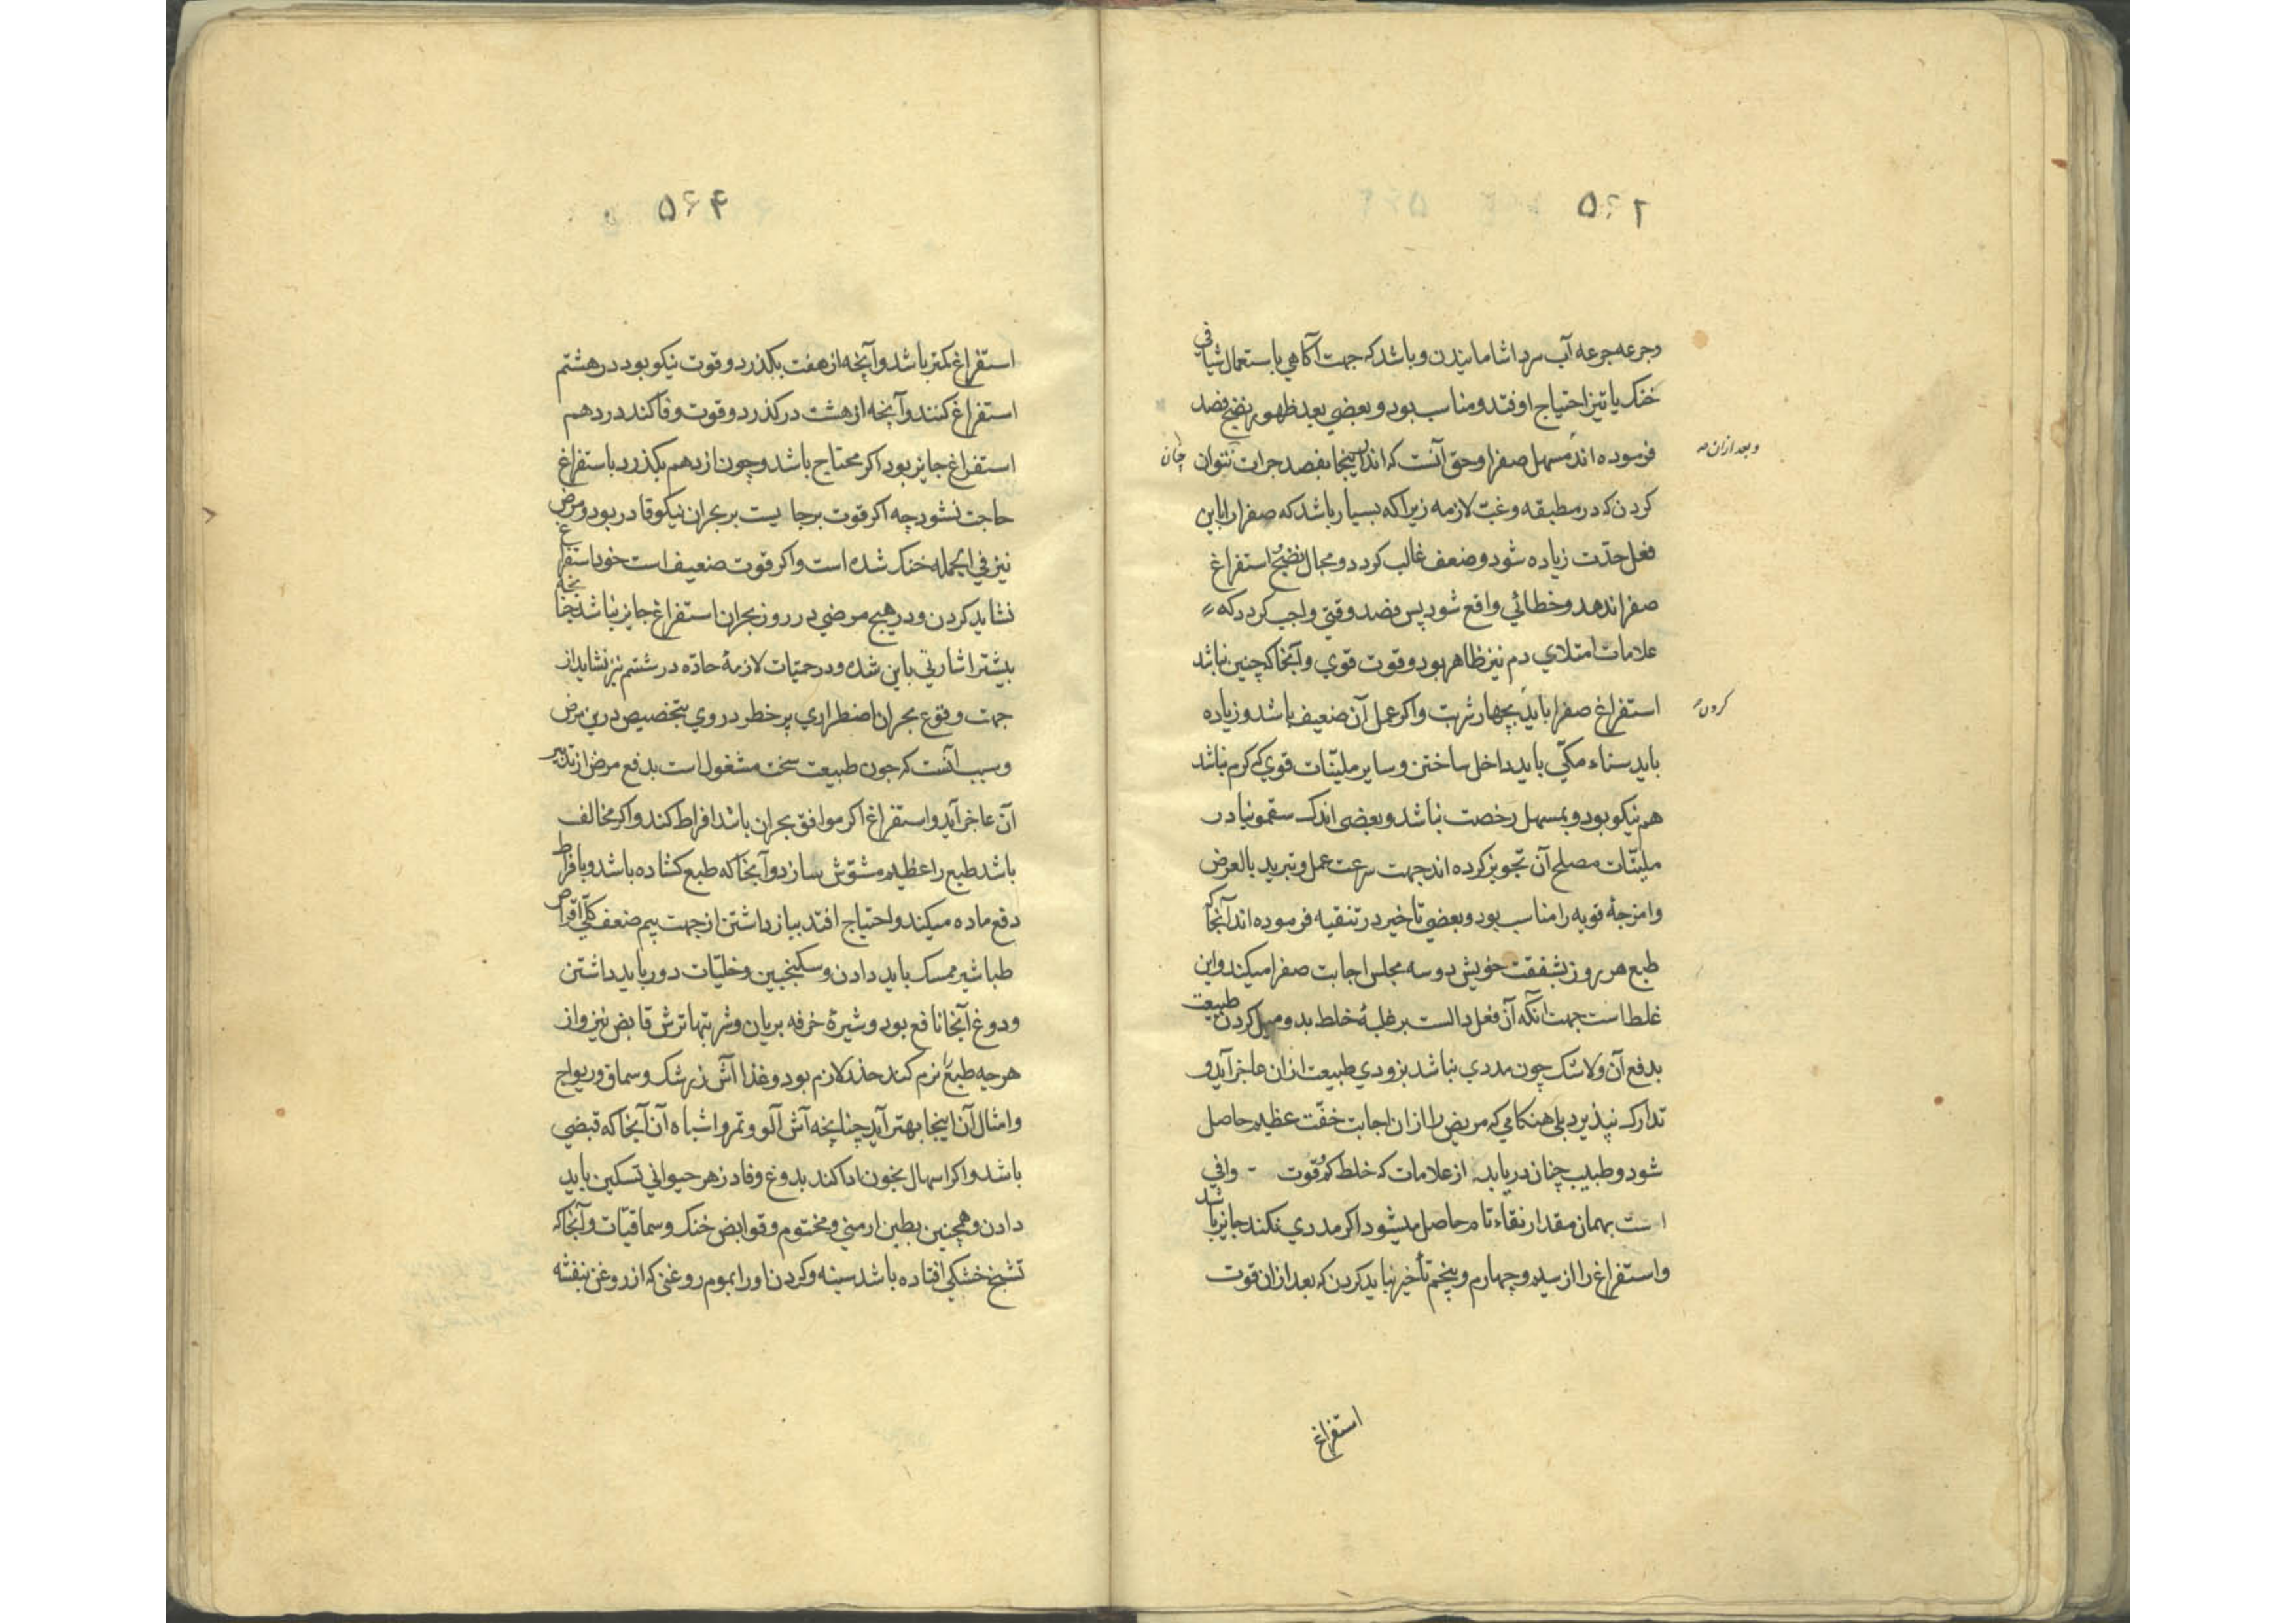 ۵۶۲
وجرعه جرعه آب سرد اشامانیدن و باشد که جهت آکاهی باستعمال شیافی
خنک یا تیز احتیاج اوفتد و مناسب بود و بعضی بعد ظهور نضج فصد
فرموده اند مسهل صفرا و حق آنست که اندر اینجا بفصد جرات نتوان
وبعد ازان
چنان
کردن که در مطبقه و غب لازمه زیرا که بسیار باشد که صفرا را باین
فعل حدّت زیاده شود و ضعف غالب کردد و مجال نضج و استفراغ
صفرا ندهد و خطائی واقع شود پس فصد وقتی واجب کردد که
علامات امتلای دم نیز ظاهر بود و قوت قوی و آنجا که چنین نباشد
استفراغ صفرا باید بچهار شربت و اکر عمل آن ضعیف باشد و زیاده
کردن
باید سناء مکّی باید داخل ساختن و سایر ملیّنات قوی که کرم نباشد
هم نیکو بود و بمسهل رخصت نباشد و بعضی اندک سقمونیا در
ملیّنات مصلح آن تجویز کرده اند جهت سرعت عمل و تبرید بالعرض
و امزجهٔ قویه را مناسب بود و بعضی تاخیر در تنقیه فرموده اند آنجا که
طبع هر روز بشفقت خویش دو سه مجلس اجابت صفرا میکند و این
غلط است جهت آنکه آن فعل دالست بر غلبهٔ خلط بد و میل کردن طبیعت
بدفع آن و لاشک چون مددی نباشد بزودی طبیعت ازان عاجز آید و
تدارک نپذیرد بلی هنکامی که مریض را ازان اجابت خفّت عظیم حاصل
شود و طبیب چنان دریابد از علامات که خلط کم و قوت وافی
است بهمان مقدار نقاء تام حاصل میشود اکر مددی نکند جایز باشد
و استفراغ را از سیم و چهارم و پنجم تأخیر نباید کردن که بعد ازان قوت
استفراغ
۵۶۴
استفراغ کمتر باشد و آنچه از هفت بکذرد و قوت نیکو بود در هشتم
استفراغ کنند و آنچه از هشت درکذرد و قوت وفا کند در دهم
استفراغ جایز بود اکر محتاج باشد و چون از دهم بکذرد باستفراغ
حاجت نشود چه اکر قوت برجا یست بر بحران نیکو قادر بود و مرض
نیز فی الجمله خنک شده است و اکر قوت ضعیف است خود استفراغ
نشاید کردن و در هیچ مرضی در روز بحران استفراغ جایز نباشد چنانچه
بیشتر اشارتی باین شده و در حمیّات لازمهٔ حادّه در ششم نیز نشاید از
جهت وقوع بحران اضطراری پر خطر در وی بتخصیص درین مرض
و سبب آنست که چون طبیعت سخت مشغول است بدفع مرض از تدبیر
آن عاجز آید و استفراغ اکر موافق بحران باشد افراط کند و اکر مخالف
باشد طبع را عظیم مشوّش بسازد و آنجا که طبع کشاده باشد و بافراط
دفع ماده میکند و احتیاج افتد بباز داشتن از جهت بیم ضعف کلّی اقراص
طباشیر ممسک باید دادن و سکنجبین و خلیّات دور باید داشتن
و دوغ آنجا نافع بود و شیرهٔ خرفه بریان و شربتها ترش قابض نیز و از
هرچه طبع را نرم کند حذر لازم بود و غذا آش زرشک و سماق و ریواج
و امثال آن اینجا بهتر آید چنانچه آش آلو و تمر و اشباه آن آنجا که قبضی
باشد و اکر اسهال بخون ادا کند بدوغ و فادزهر حیوانی تسکین باید
دادن و همچنین بطین ارمنی و مختوم و قوابض خنک و سماقیّات و آنجا که
تشنج خشکی افتاده باشد سینه و کردن او را بموم روغنی که از روغن بنفشه